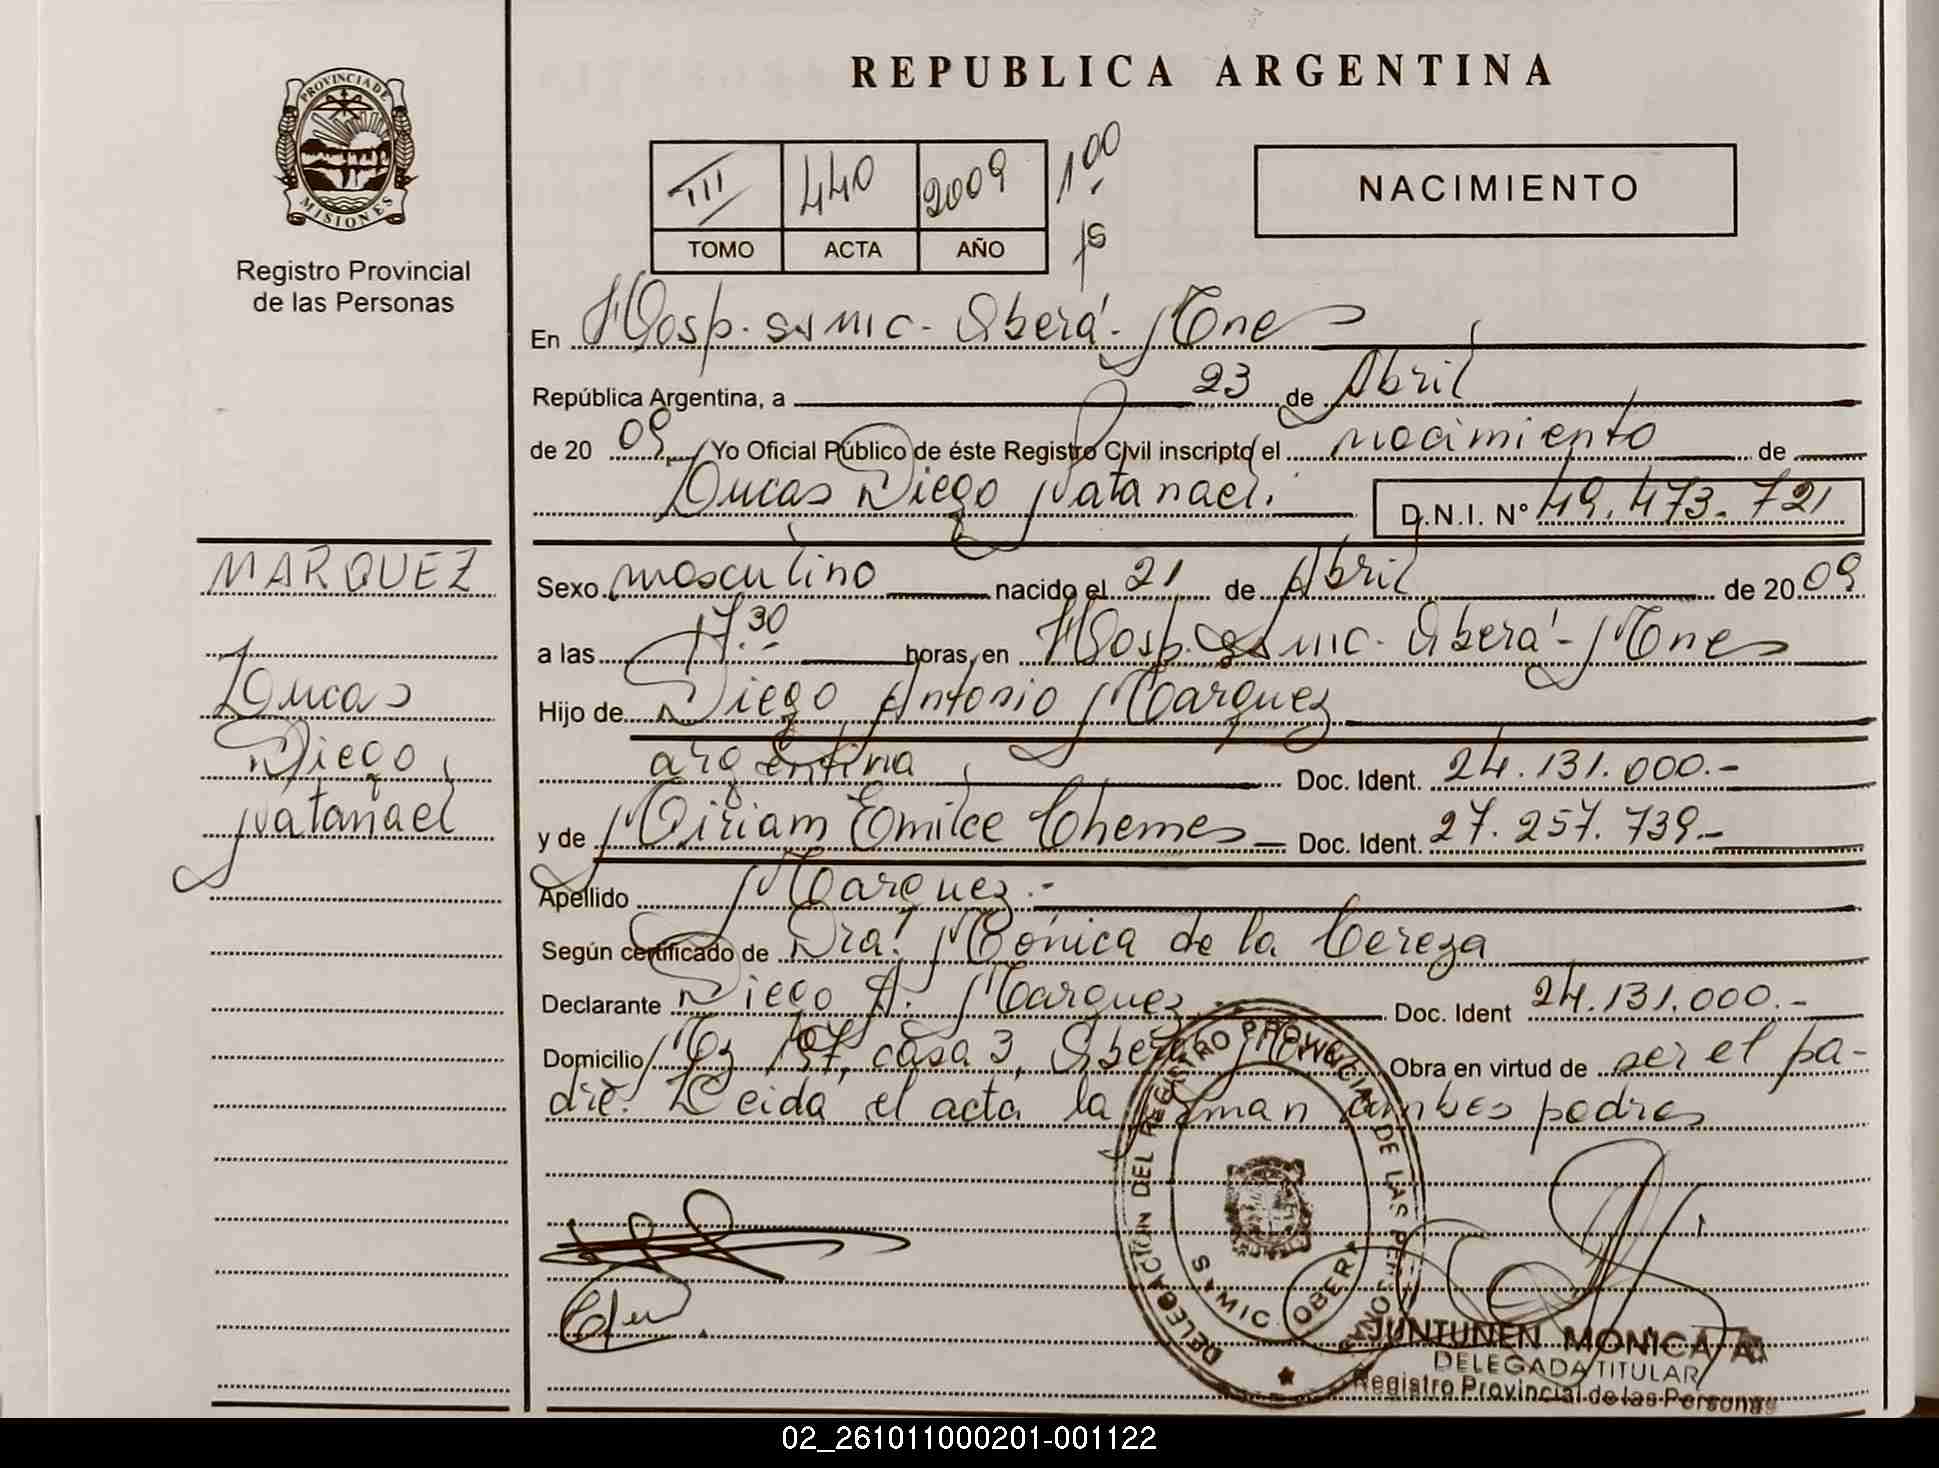 PROVINCIA DE
MISIONES
Registro Provincial
de las Personas
REPUBLICA ARGENTINA
III 440 2009 1 00
TOMO ACTA AÑO
NACIMIENTO
En Hosp. SAMIC - Oberá - Mnes
República Argentina, a 23 de Abril
de 20 09 Yo Oficial Público de éste Registro Civil inscripto el nacimiento de
Lucas Diego Natanael.
D.N.I. N° 49.473.721
MARQUEZ
Lucas
Diego
Natanael
Sexo masculino nacido el 21 de Abril de 20 09
a las 17.30 horas, en Hosp. SAMIC - Oberá - Mnes
Hijo de Diego Antonio Marquez
argentina Doc. Ident. 24.131.000.-
y de Miriam Emilce Chemes Doc. Ident. 27.257.739.-
Apellido Marquez.-
Según certificado de Dra. Mónica de la Cereza
Declarante Diego A. Marquez Doc. Ident 24.131.000.-
Domicilio Mz 197, casa 3, Oberá Mnes Obra en virtud de ser el pa-
dre. Leida el acta la firman ambos padres
DELEGACION DEL REGISTRO PROVINCIAL DE LAS PERSONAS
SAMIC OBERA
JUNTUNEN MONICA A.
DELEGADA TITULAR
Registro Provincial de las Personas
02_261011000201-001122